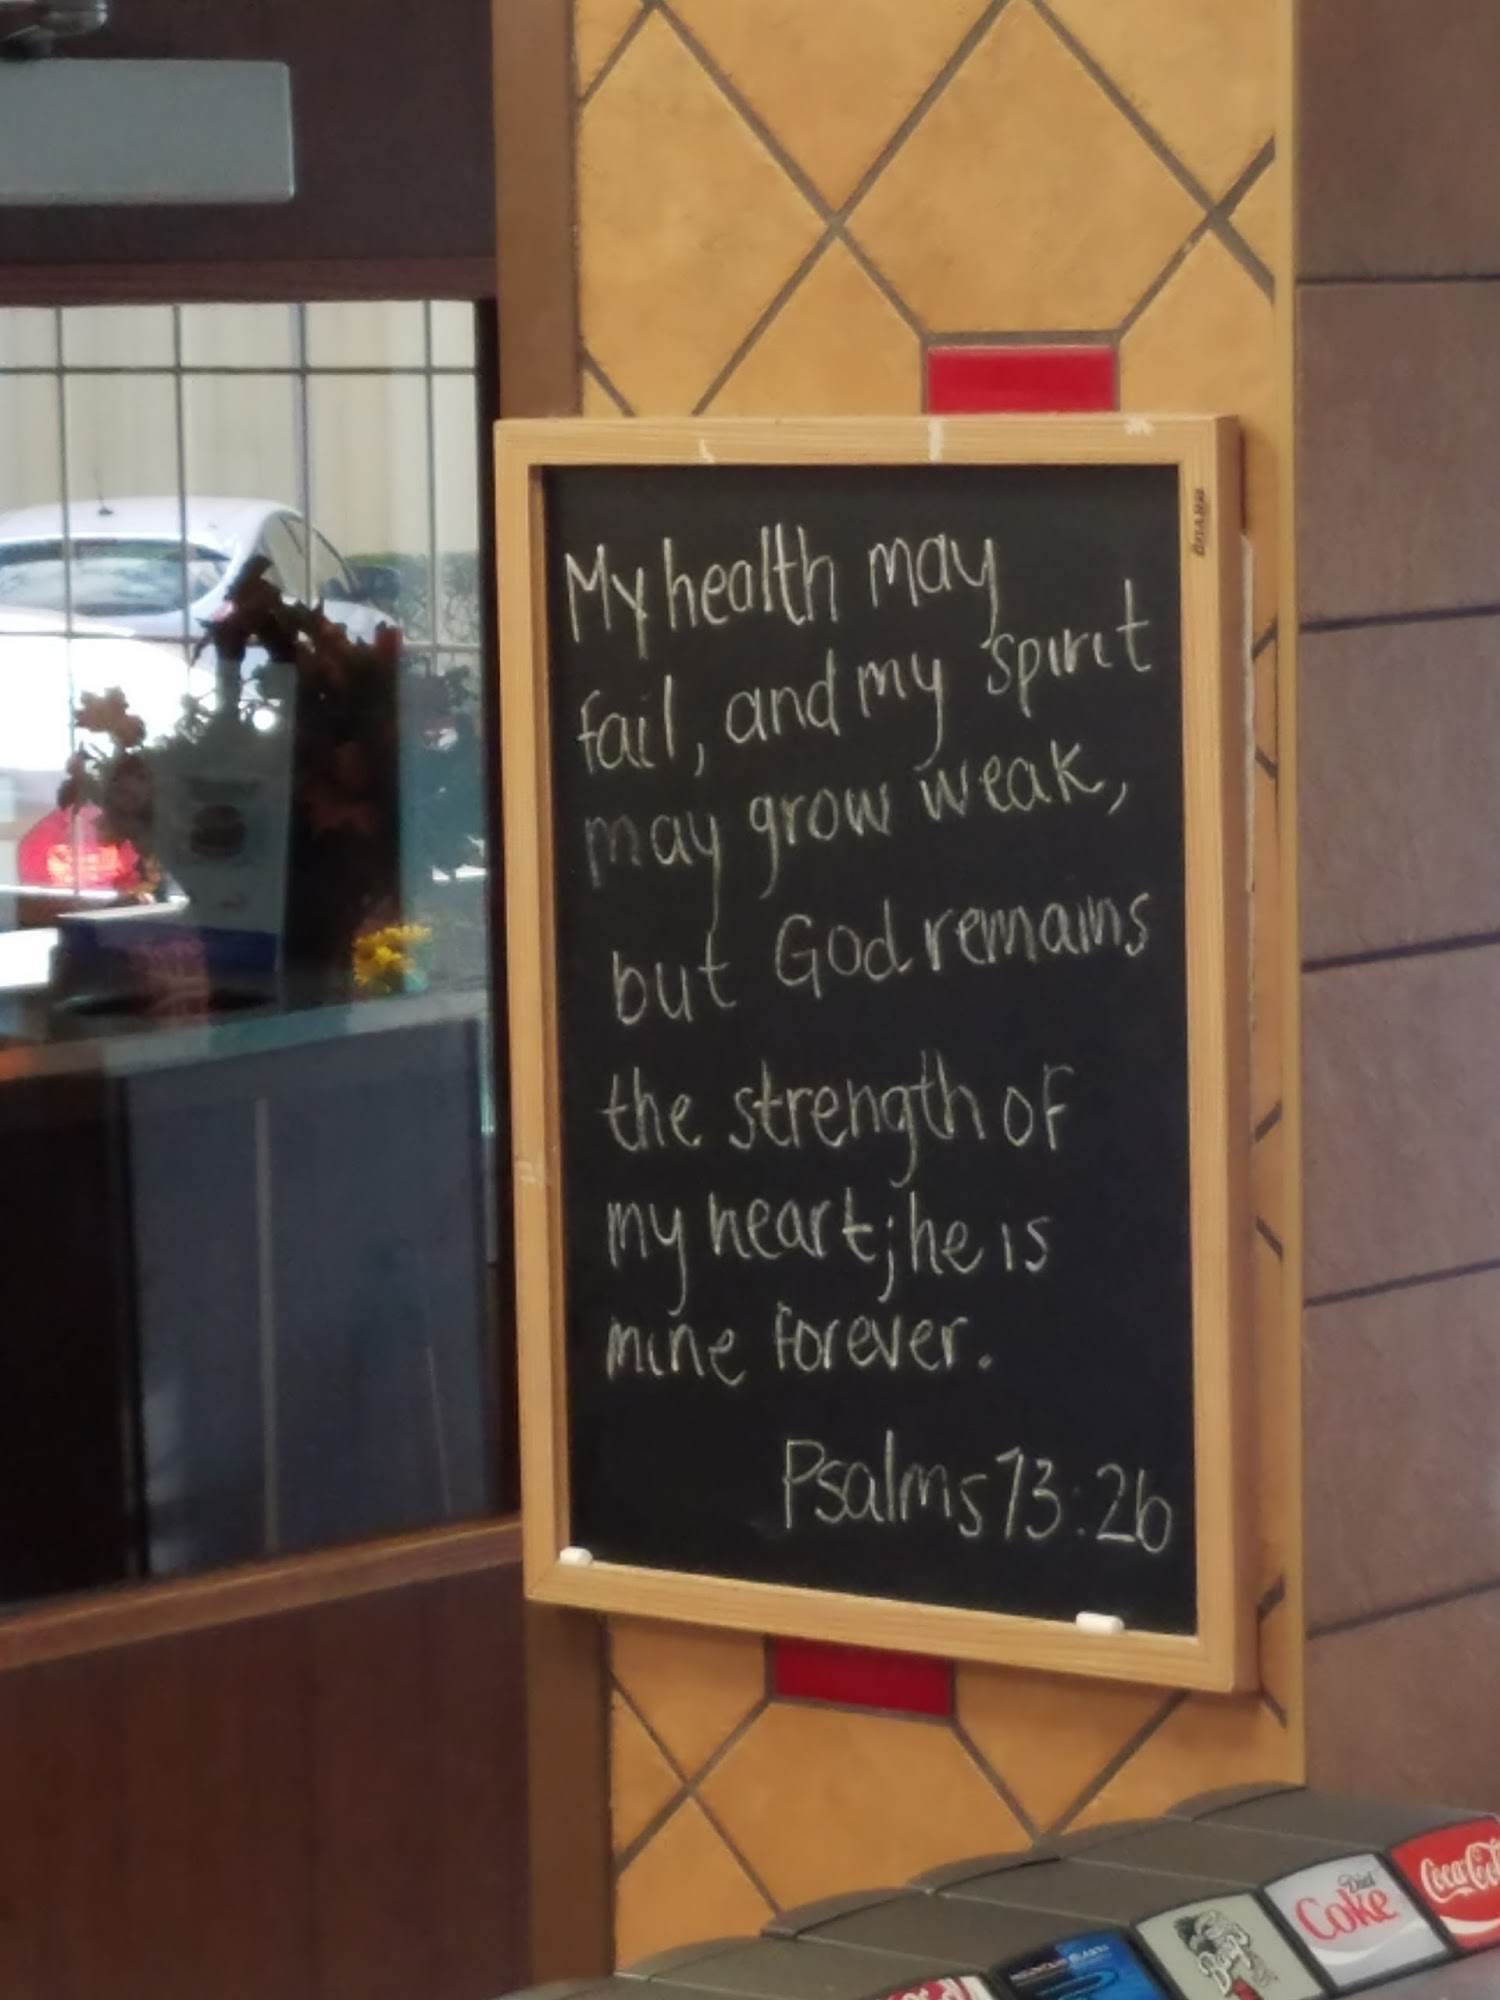 My health may
fail, and my spirit
may grow weak,
but God remains
the strength of
my heart; he is
mine forever.
Psalms 73:26
Barq's
Diet
Coke
Coca-Col